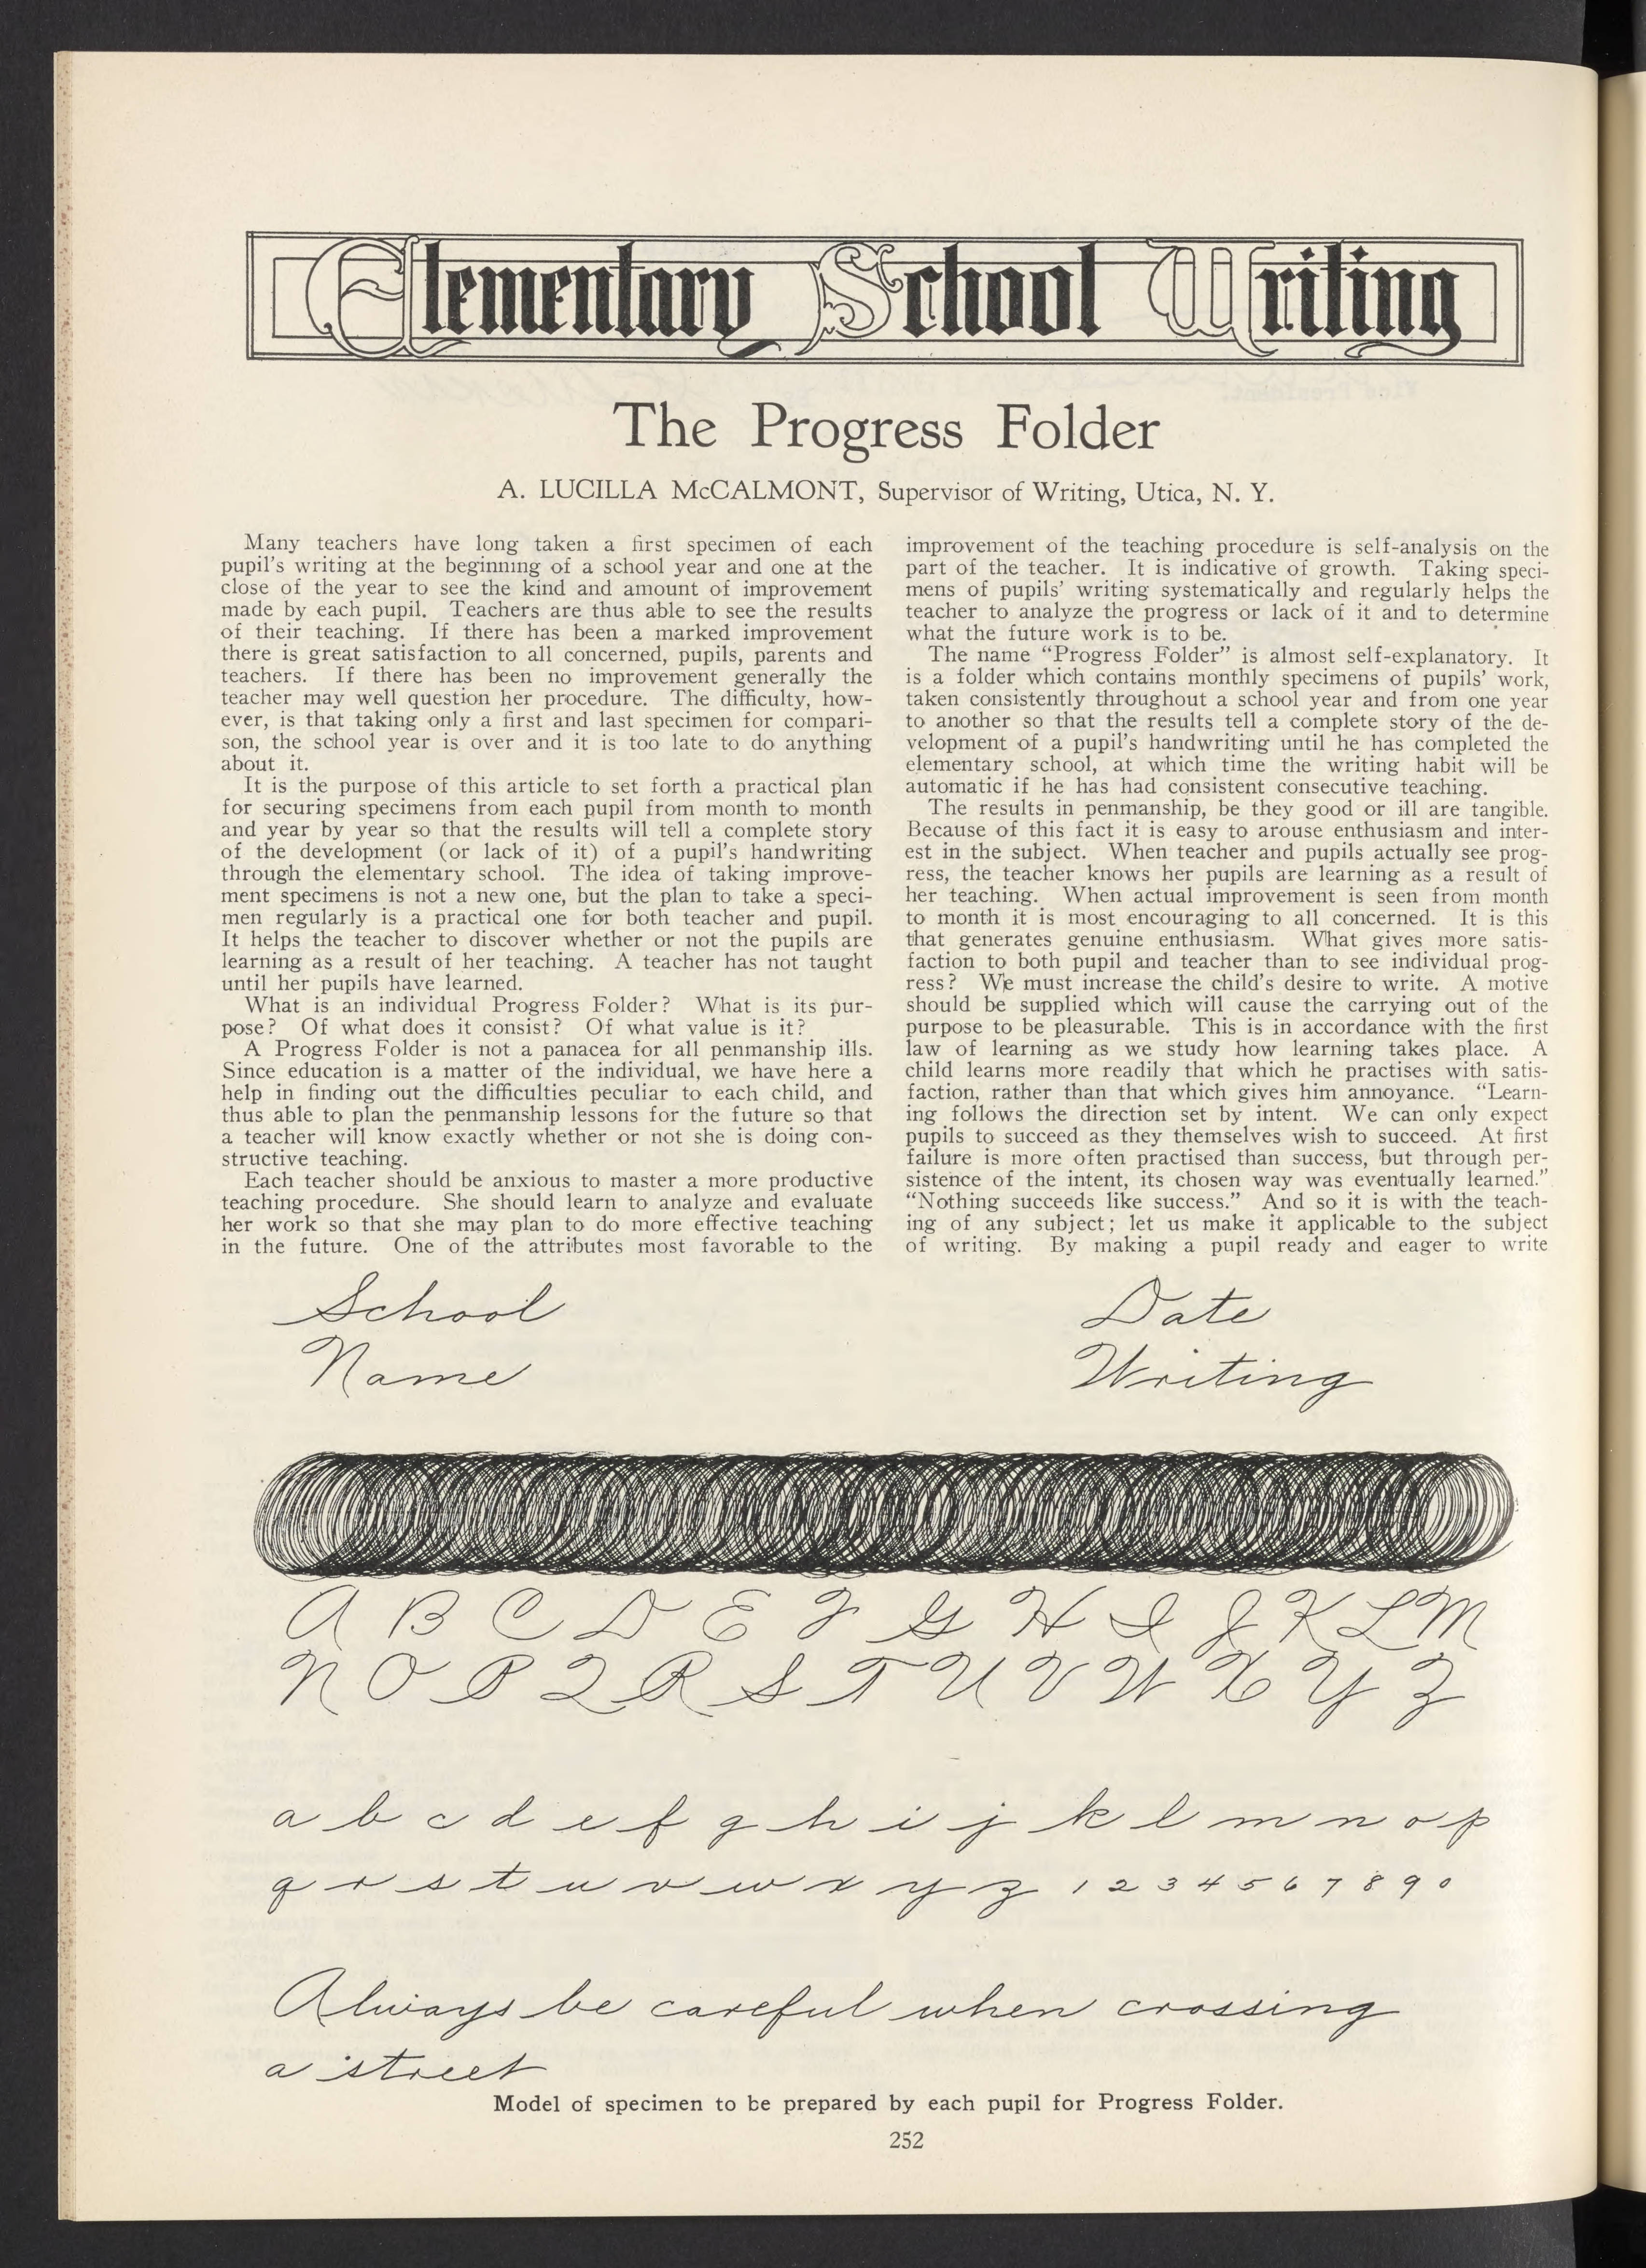 Elementary School Writing
The Progress Folder
A. LUCILLA McCALMONT, Supervisor of Writing, Utica, N. Y.
Many teachers have long taken a first specimen of each
pupil's writing at the beginning of a school year and one at the
close of the year to see the kind and amount of improvement
made by each pupil. Teachers are thus able to see the results
of their teaching. If there has been a marked improvement
there is great satisfaction to all concerned, pupils, parents and
teachers. If there has been no improvement generally the
teacher may well question her procedure. The difficulty, how-
ever, is that taking only a first and last specimen for compari-
son, the school year is over and it is too late to do anything
about it.
It is the purpose of this article to set forth a practical plan
for securing specimens from each pupil from month to month
and year by year so that the results will tell a complete story
of the development (or lack of it) of a pupil's handwriting
through the elementary school. The idea of taking improve-
ment specimens is not a new one, but the plan to take a speci-
men regularly is a practical one for both teacher and pupil.
It helps the teacher to discover whether or not the pupils are
learning as a result of her teaching. A teacher has not taught
until her pupils have learned.
What is an individual Progress Folder? What is its pur-
pose? Of what does it consist? Of what value is it?
A Progress Folder is not a panacea for all penmanship ills.
Since education is a matter of the individual, we have here a
help in finding out the difficulties peculiar to each child, and
thus able to plan the penmanship lessons for the future so that
a teacher will know exactly whether or not she is doing con-
structive teaching.
Each teacher should be anxious to master a more productive
teaching procedure. She should learn to analyze and evaluate
her work so that she may plan to do more effective teaching
in the future. One of the attributes most favorable to the
improvement of the teaching procedure is self-analysis on the
part of the teacher. It is indicative of growth. Taking speci-
mens of pupils' writing systematically and regularly helps the
teacher to analyze the progress or lack of it and to determine
what the future work is to be.
The name "Progress Folder" is almost self-explanatory. It
is a folder which contains monthly specimens of pupils' work,
taken consistently throughout a school year and from one year
to another so that the results tell a complete story of the de-
velopment of a pupil's handwriting until he has completed the
elementary school, at which time the writing habit will be
automatic if he has had consistent consecutive teaching.
The results in penmanship, be they good or ill are tangible.
Because of this fact it is easy to arouse enthusiasm and inter-
est in the subject. When teacher and pupils actually see prog-
ress, the teacher knows her pupils are learning as a result of
her teaching. When actual improvement is seen from month
to month it is most encouraging to all concerned. It is this
that generates genuine enthusiasm. What gives more satis-
faction to both pupil and teacher than to see individual prog-
ress? We must increase the child's desire to write. A motive
should be supplied which will cause the carrying out of the
purpose to be pleasurable. This is in accordance with the first
law of learning as we study how learning takes place. A
child learns more readily that which he practises with satis-
faction, rather than that which gives him annoyance. "Learn-
ing follows the direction set by intent. We can only expect
pupils to succeed as they themselves wish to succeed. At first
failure is more often practised than success, but through per-
sistence of the intent, its chosen way was eventually learned."
"Nothing succeeds like success." And so it is with the teach-
ing of any subject; let us make it applicable to the subject
of writing. By making a pupil ready and eager to write
School Date
Name Writing
A B C D E F G H I J K L M
N O P Q R S T U V W X Y Z
a b c d e f g h i j k l m n o p
q r s t u v w x y z 1 2 3 4 5 6 7 8 9 0
Always be careful when crossing
a street
Model of specimen to be prepared by each pupil for Progress Folder.
252